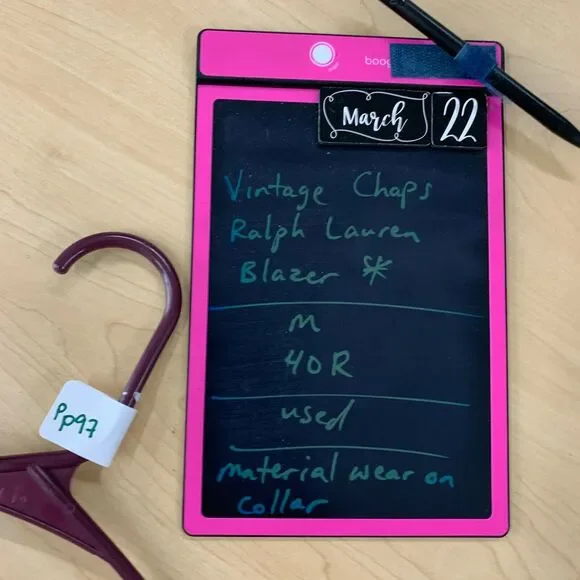 March 22
Vintage Chaps
Ralph Lauren
Blazer *
M
40R
used
material wear on
collar
Pp97